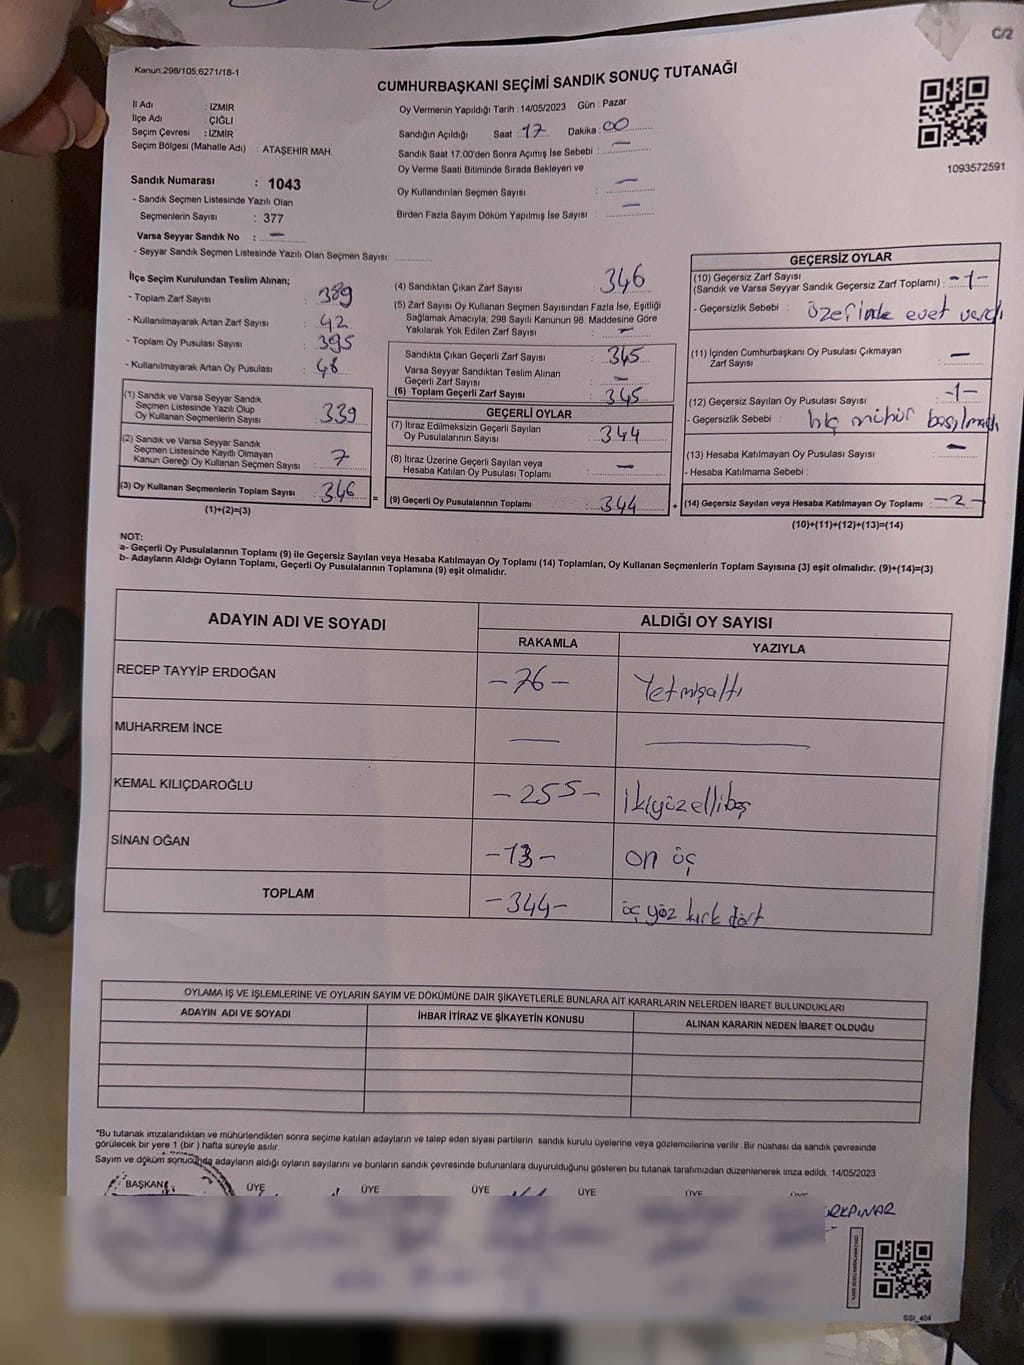 C/2
Kanun;298/105;6271/18-1
CUMHURBAŞKANI SEÇİMİ SANDIK SONUÇ TUTANAĞI
İl Adı : İZMİR
İlçe Adı : ÇİĞLİ
Seçim Çevresi : İZMİR
Seçim Bölgesi (Mahalle Adı) : ATAŞEHİR MAH.
Oy Vermenin Yapıldığı Tarih :14/05/2023 Gün : Pazar
Sandığın Açıldığı Saat : 17 Dakika : 00
Sandık Saat 17.00'den Sonra Açımış İse Sebebi : —
Oy Verme Saati Bitiminde Sırada Bekleyen ve
Oy Kullandırılan Seçmen Sayısı : —
Birden Fazla Sayım Döküm Yapılmış İse Sayısı : —
1093572591
Sandık Numarası : 1043
- Sandık Seçmen Listesinde Yazılı Olan
Seçmenlerin Sayısı : 377
Varsa Seyyar Sandık No : —
- Seyyar Sandık Seçmen Listesinde Yazılı Olan Seçmen Sayısı:
İlçe Seçim Kurulundan Teslim Alınan;
- Toplam Zarf Sayısı : 389
- Kullanılmayarak Artan Zarf Sayısı : 42
- Toplam Oy Pusulası Sayısı : 395
- Kullanılmayarak Artan Oy Pusulası : 48
(1) Sandık ve Varsa Seyyar Sandık
Seçmen Listesinde Yazılı Olup
Oy Kullanan Seçmenlerin Sayısı : 339
(2) Sandık ve Varsa Seyyar Sandık
Seçmen Listesinde Kayıtlı Olmayan
Kanun Gereği Oy Kullanan Seçmen Sayısı : 7
(3) Oy Kullanan Seçmenlerin Toplam Sayısı : 346
(1)+(2)=(3)
(4) Sandıktan Çıkan Zarf Sayısı : 346
(5) Zarf Sayısı Oy Kullanan Seçmen Sayısından Fazla İse, Eşitliği
Sağlamak Amacıyla; 298 Sayılı Kanunun 98. Maddesine Göre
Yakılarak Yok Edilen Zarf Sayısı : —
Sandıkta Çıkan Geçerli Zarf Sayısı : 345
Varsa Seyyar Sandıktan Teslim Alınan
Geçerli Zarf Sayısı : —
(6) Toplam Geçerli Zarf Sayısı : 345
GEÇERLİ OYLAR
(7) İtiraz Edilmeksizin Geçerli Sayılan
Oy Pusulalarının Sayısı : 344
(8) İtiraz Üzerine Geçerli Sayılan veya
Hesaba Katılan Oy Pusulası Toplamı : —
= (9) Geçerli Oy Pusulalarının Toplamı : 344
GEÇERSİZ OYLAR
(10) Geçersiz Zarf Sayısı
(Sandık ve Varsa Seyyar Sandık Geçersiz Zarf Toplamı) : -1-
- Geçersizlik Sebebi : üzerinde evet vardı
(11) İçinden Cumhurbaşkanı Oy Pusulası Çıkmayan
Zarf Sayısı : —
(12) Geçersiz Sayılan Oy Pusulası Sayısı : -1-
- Geçersizlik Sebebi : hiç mühür basılmadı
(13) Hesaba Katılmayan Oy Pusulası Sayısı : —
- Hesaba Katılmama Sebebi :
+ (14) Geçersiz Sayılan veya Hesaba Katılmayan Oy Toplamı : -2-
(10)+(11)+(12)+(13)=(14)
NOT:
a- Geçerli Oy Pusulalarının Toplamı (9) ile Geçersiz Sayılan veya Hesaba Katılmayan Oy Toplamı (14) Toplamları, Oy Kullanan Seçmenlerin Toplam Sayısına (3) eşit olmalıdır. (9)+(14)=(3)
b- Adayların Aldığı Oyların Toplamı, Geçerli Oy Pusulalarının Toplamına (9) eşit olmalıdır.
ADAYIN ADI VE SOYADI ALDIĞI OY SAYISI
RAKAMLA YAZIYLA
RECEP TAYYİP ERDOĞAN -76- Yetmişaltı
MUHARREM İNCE — —
KEMAL KILIÇDAROĞLU -255- ikiyüzellibeş
SİNAN OĞAN -13- on üç
TOPLAM -344- üç yüz kırk dört
OYLAMA İŞ VE İŞLEMLERİNE VE OYLARIN SAYIM VE DÖKÜMÜNE DAİR ŞİKAYETLERLE BUNLARA AİT KARARLARIN NELERDEN İBARET BULUNDUKLARI
ADAYIN ADI VE SOYADI İHBAR İTİRAZ VE ŞİKAYETİN KONUSU ALINAN KARARIN NEDEN İBARET OLDUĞU
*Bu tutanak imzalandıktan ve mühürlendikten sonra seçime katılan adayların ve talep eden siyasi partilerin sandık kurulu üyelerine veya gözlemcilerine verilir .Bir nüshası da sandık çevresinde
görülecek bir yere 1 (bir ) hafta süreyle asılır.
Sayım ve döküm sonucunda adayların aldığı oyların sayılarını ve bunların sandık çevresinde bulunanlara duyurulduğunu gösteren bu tutanak tarafımızdan düzenlenerek imza edildi. 14/05/2023
BAŞKAN ÜYE ÜYE ÜYE ÜYE ÜYE
SSI_404